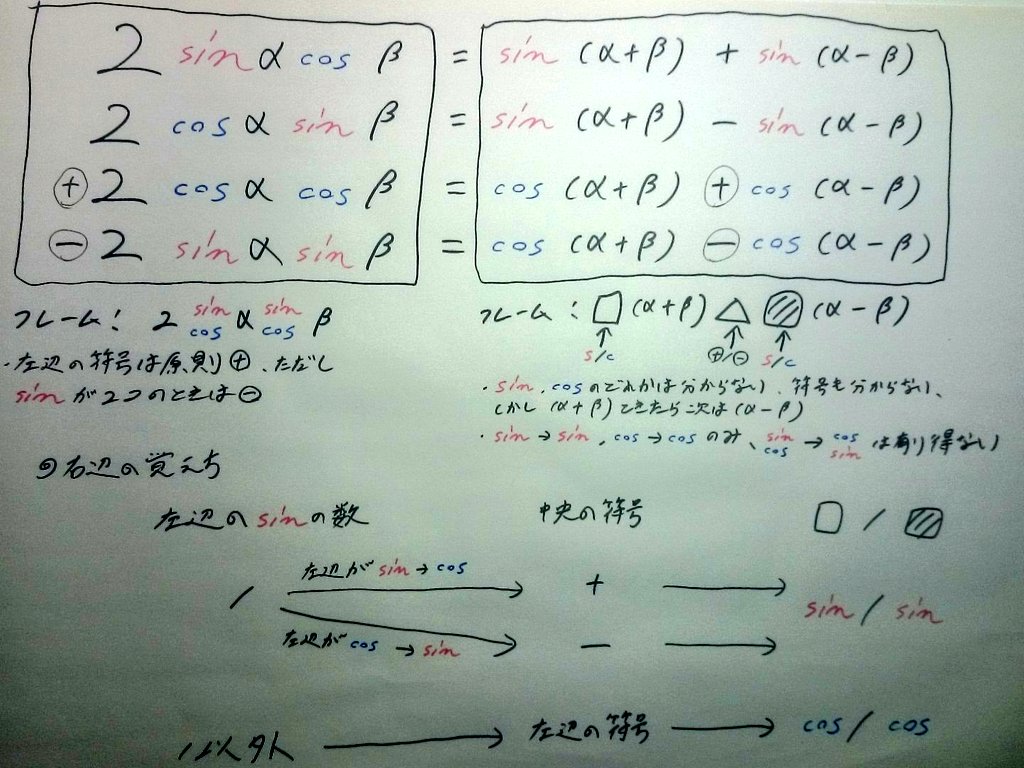 2 sin α cos β = sin (α+β) + sin (α-β)
2 cos α sin β = sin (α+β) - sin (α-β)
⊕ 2 cos α cos β = cos (α+β) ⊕ cos (α-β)
⊖ 2 sin α sin β = cos (α+β) ⊖ cos (α-β)
フレーム: 2 sin/cos α sin/cos β
・左辺の符号は原則⊕、ただし
sinが2つのときは⊖
フレーム: □ (α+β) △ ▨ (α-β)
↑ ↑ ↑
s/c ⊕/⊖ s/c
・sin, cosのどれかは分からない、符号も分からない、
しかし (α+β) できたら次は (α-β)
・sin→sin, cos→cos のみ、sin/cos → cos/sin は有り得ない
右辺の覚え方
左辺のsinの数 中央の符号 □ / ▨
左辺が sin→cos
1 → + →
sin / sin
左辺が cos → sin → - →
1以外 → 左辺の符号 → cos / cos